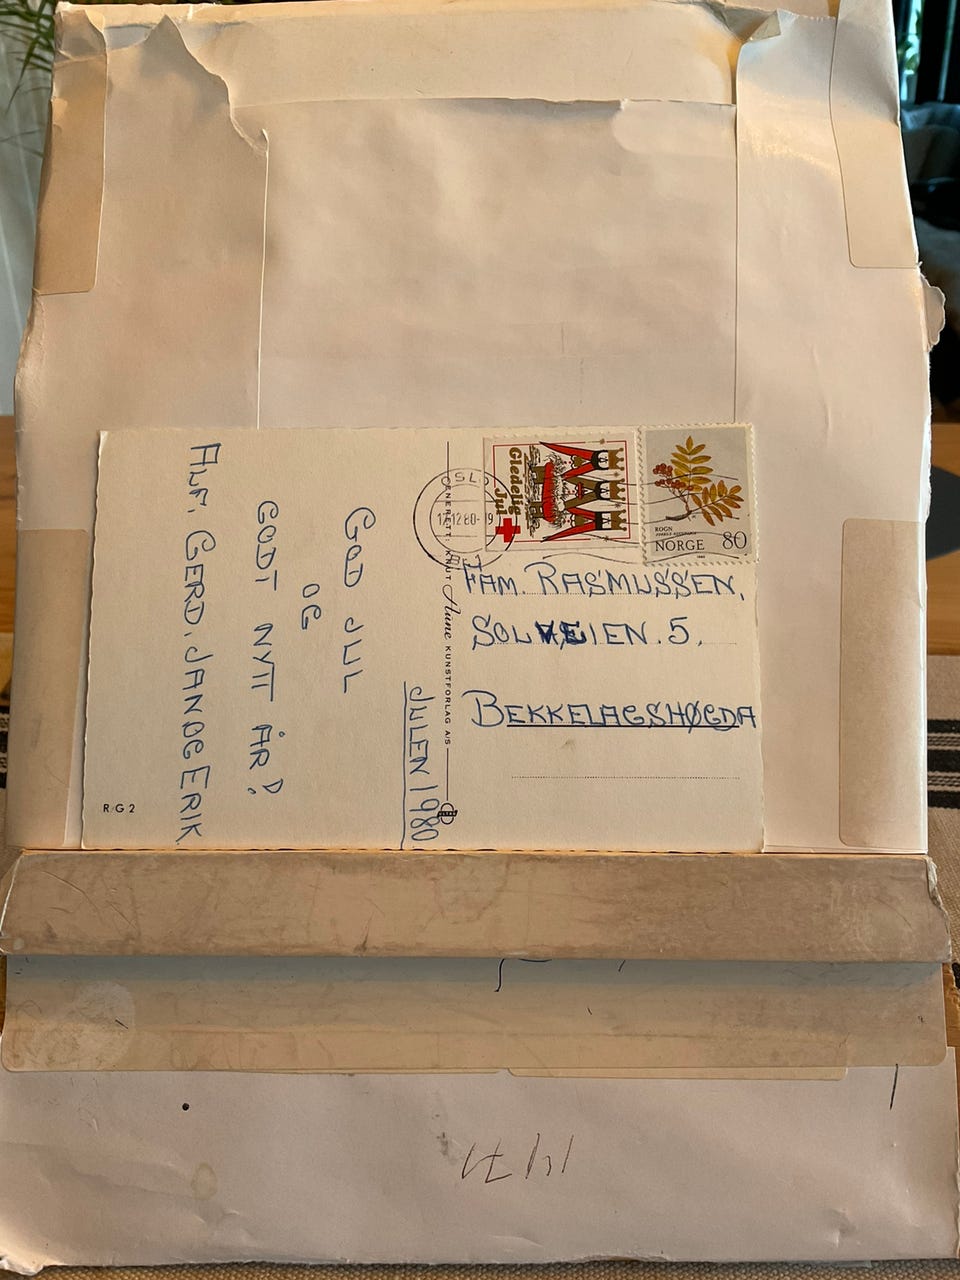 GOD JUL
OG
GODT NYTT ÅR!
ALF, GERD, JAN OG ERIK
JULEN 1980
R G 2
ENERETT: KNUT Aune KUNSTFORLAG A/S
OSLO
17.12.80-19
Gledelig
Jul
ROGN
NORGE 80
FAM. RASMUSSEN,
SOLVEIEN.5.
BEKKELAGSHØGDA